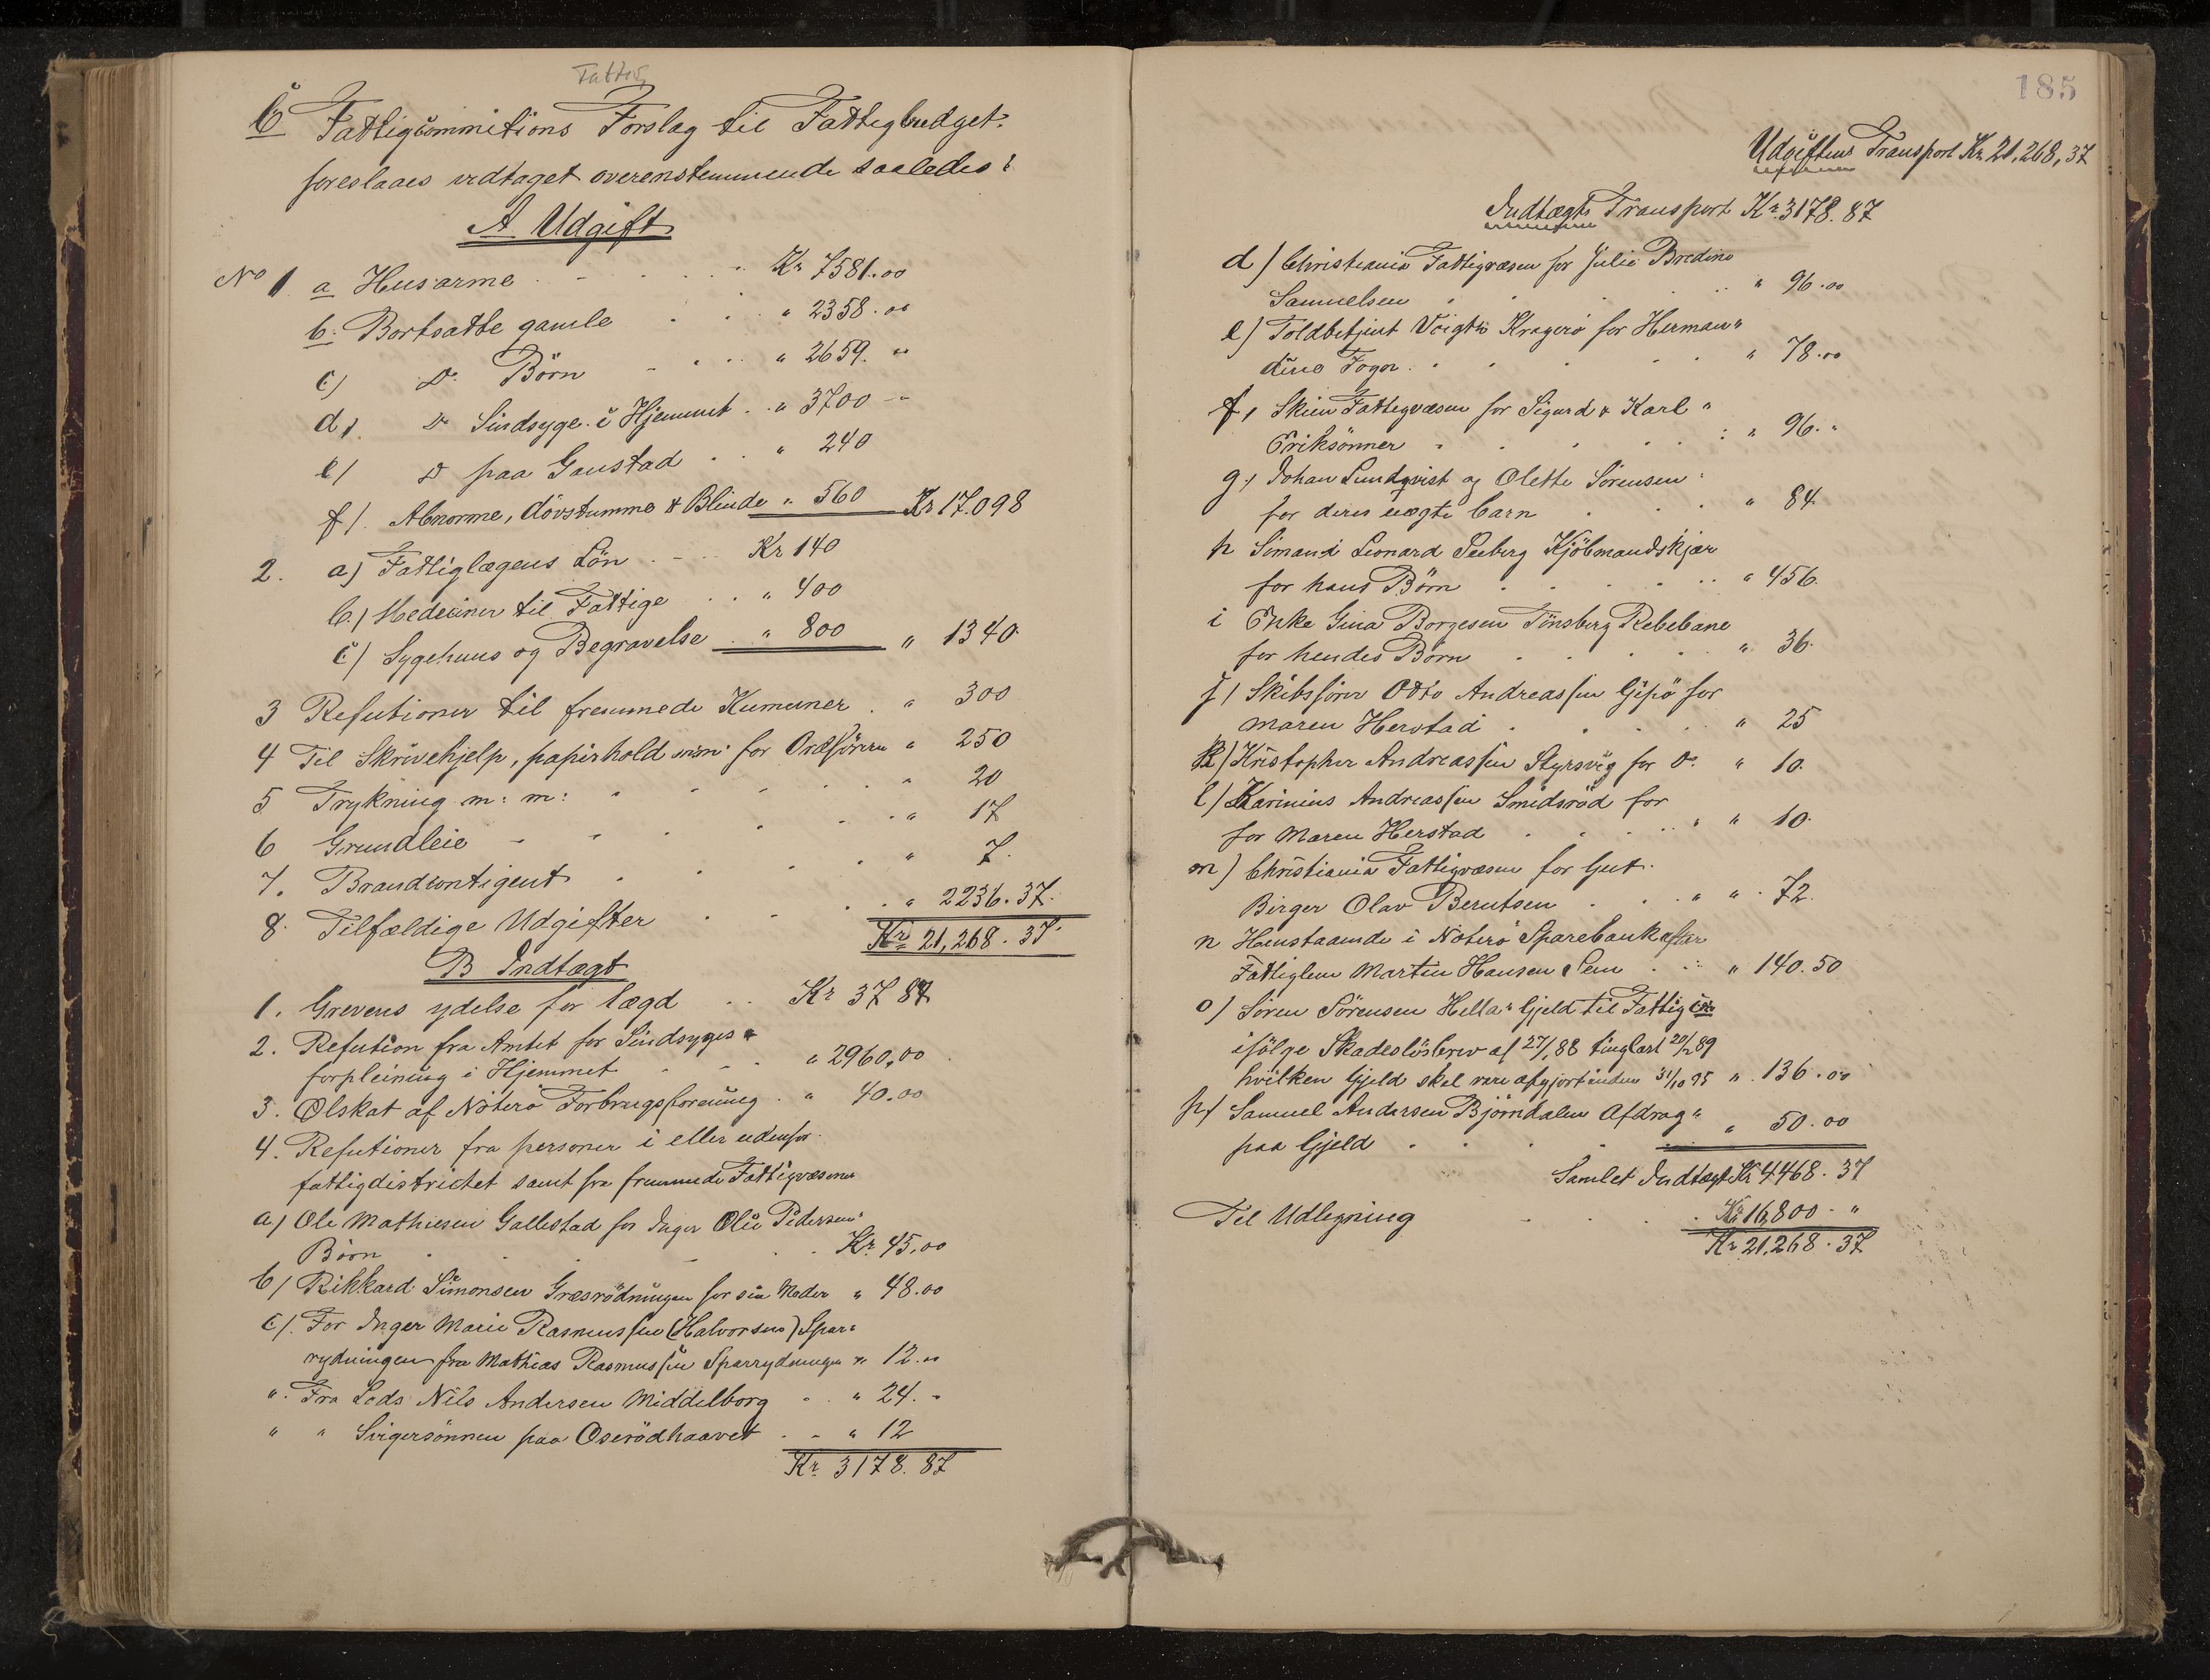 Fattig
6 Fattigcommitions Forslag til Fattigbudget:
foreslaaes vedtaget overenstemmende saaledes:
A Udgift
No 1 a Husarme Kr 7581.00
b. Bortsatte gamle " 2358.00
c) Do Börn " 2659. "
d) Do Sindsyge i Hjemmet " 3700 "
e) Do paa Gaustad " 240
f) Abnorme, dövstumme & Blinde " 560 Kr 17.098
2. a) Fattiglægens Lön Kr 140
b) Mediciner til Fattige " 400
c) Sygehuus og Begravelse " 800 " 1340.
3 Refutioner til fremmede Kumuner " 300
4 Til Skrivehjelp, papirhold m:m: for Ordföreren " 250
5 Trykning m: m: " 20
6 Grundleie " 17
7. Brandcontigent " 7.
8. Tilfældige Udgifter " 2236.37.
Kr 21,268.37.
B Indtægt
1. Grevens ydelse for lægd Kr 37 87
2. Refution fra Amtet for Sindsyges
forpleining i Hjemmet " 2960,00
3. Ølskat af Nöterö Forbrugsforening " 40.00
4. Refutioner fra personer i eller udenfor
fattigdistrictet samt fra fremmede Fattigvæsener
a) Ole Mathiesen Gallestad for Inger Olie Pedersens
Börn Kr. 45,00
b) Rikkard Simonsen Græsrödningen for sin Moder " 48.00
c) For Inger Marie Rasmussen (Halvorsens) Spar:
rydningen fra Mathias Rasmussen Sparrydningen " 12.00
" Fra Lods Nils Andersen Middelborg " 24. "
" " Svigersönnen paa Oserödhaavet " 12
Kr. 3178.87
185
Udgiftens Transport Kr 21,268,37
Indtægts Transport Kr. 3178.87
d) Christiania Fattigvæsen for Julie Bredine
Samuelsen " 96.00
e) Toldbetjent Voigt Kragerö for Herman"
dine Foyn " 78.00
f, Skien Fattigvæsen for Sigurd & Karl "
Eriksönner " 96. "
g, Johan Lundqvist og Olette Sörensen
for deres uægte barn " 84.
h Simand Leonard Seeberg Kjöbmandskjær
for hans Börn " 456.
i Enke Gina Borgesen Tönsberg Rebebane
for hendes Börn " 36.
j) Skibsförer Otto Andreassen Gipö for
Maren Herstad " 25
k) Kristopher Andreassen Styrsvig for Do " 10.
l) Karinius Andreassen Smidsröd for
for Maren Herstad " 10.
m) Christiania Fattigvæsen for Gut.
Birger Olav Berntsen " 72.
n Henstaaende i Nöterö Sparebank efter
Fattiglem Martin Hansen Sem " 140.50
o) Sören Sörensen Hella " Gjeld til Fattig
ifölge Skadeslösbrev af 27/1 88 tinglæst 20/2 89
hvilken Gjeld skal være afgjort inden 31/10 95 " 136.00
p) Samuel Andersen Björndalen Afdrag "
paa Gjeld " 50.00
Samlet Indtægt Kr 4468.37
Til Udligning Kr 16,800. "
Kr 21,268.37